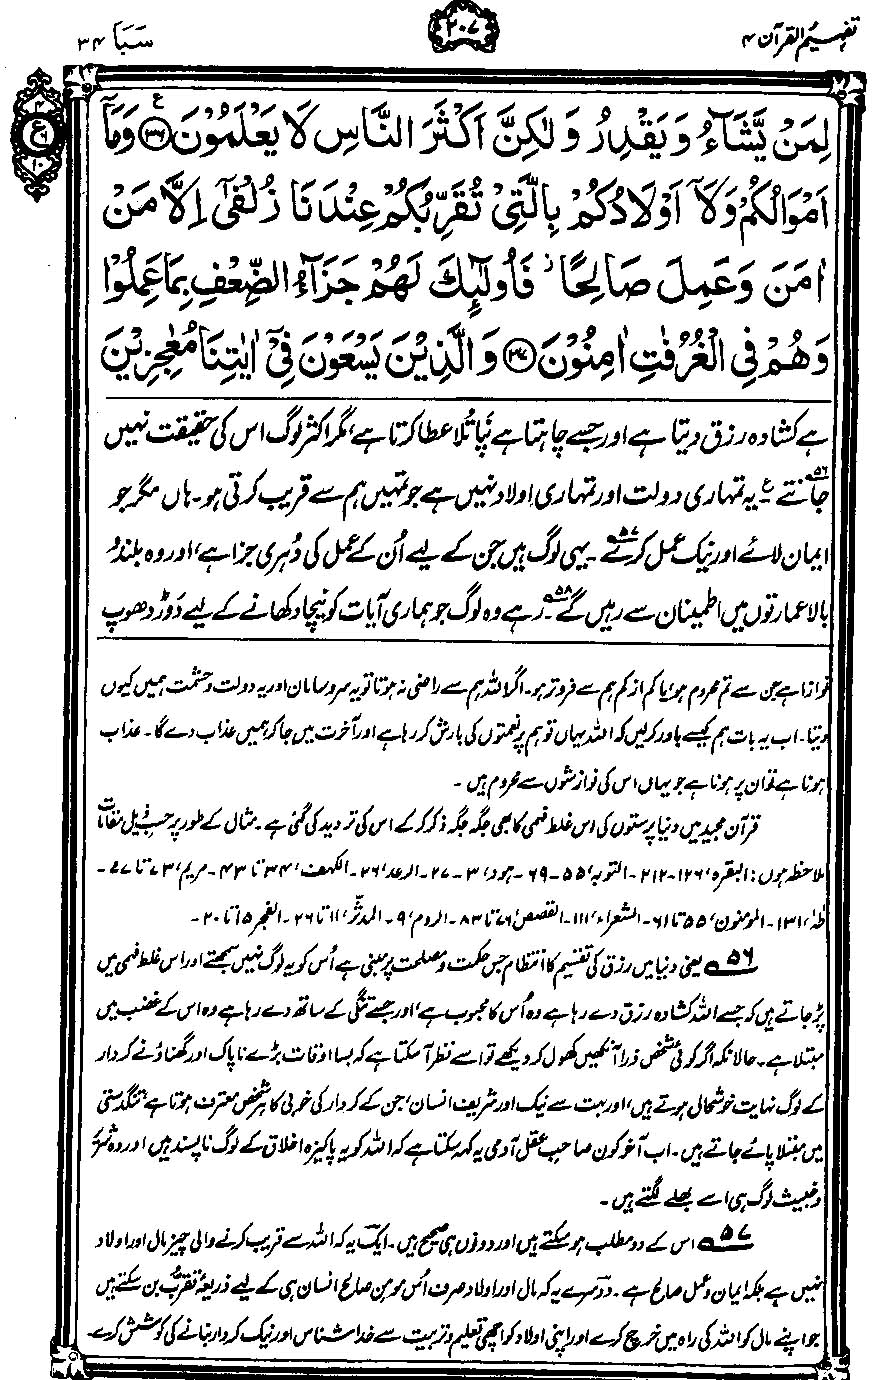 تفہیم القرآن ۴
۲۰۷
سَبَا ۳۴
لِمَنْ يَّشَآءُ وَيَقْدِرُ وَلٰكِنَّ اَكْثَرَ النَّاسِ لَا يَعْلَمُوْنَ ۳۶ ع وَمَآ
اَمْوَالُكُمْ وَلَآ اَوْلَادُكُمْ بِالَّتِيْ تُقَرِّبُكُمْ عِنْدَنَا زُلْفٰٓى اِلَّا مَنْ
اٰمَنَ وَعَمِلَ صَالِحًا ؗ فَاُولٰٓئِكَ لَهُمْ جَزَآءُ الضِّعْفِ بِمَا عَمِلُوْا
وَهُمْ فِي الْغُرُفٰتِ اٰمِنُوْنَ ۳۷ وَالَّذِيْنَ يَسْعَوْنَ فِيْٓ اٰيٰتِنَا مُعٰجِزِيْنَ
ہے کشادہ رزق دیتا ہے اور جسے چاہتا ہے نَپا تُلا عطا کرتا ہے، مگر اکثر لوگ اس کی حقیقت نہیں
جانتے۵۶ ع۔ یہ تمہاری دولت اور تمہاری اولاد نہیں ہے جو تمہیں ہم سے قریب کرتی ہو۔ ہاں مگر جو
ایمان لائے اور نیک عمل کرے۵۷۔ یہی لوگ ہیں جن کے لیے اُن کے عمل کی دُہری جزا ہے، اور وہ بلند و
بالا عمارتوں میں اطمینان سے رہیں گے۵۸۔ رہے وہ لوگ جو ہماری آیات کو نیچا دکھانے کے لیے دَوڑ دھوپ
نوازا ہے جن سے تم محروم ہو، یا کم از کم ہم سے فروتر ہو۔ اگر اللہ ہم سے راضی نہ ہوتا تو یہ سرو سامان اور یہ دولت و حشمت ہمیں کیوں
دیتا۔ اب یہ بات ہم کیسے باور کر لیں کہ اللہ یہاں تو ہم پر نعمتوں کی بارش کر رہا ہے اور آخرت میں جا کر ہمیں عذاب دے گا۔ عذاب
ہونا ہے تو اُن پر ہونا ہے جو یہاں اس کی نوازشوں سے محروم ہیں۔
قرآن مجید میں دنیا پرستوں کی اس غلط فہمی کا بھی جگہ جگہ ذکر کر کے اس کی تردید کی گئی ہے۔ مثال کے طور پر حسبِ ذیل مقامات
ملاحظہ ہوں: البقرہ، ۱۲۶-۲۱۲۔ التوبہ، ۵۵-۶۹۔ ہود، ۳-۲۷۔ الرعد، ۲۶۔ الکہف، ۳۴ تا ۴۳۔ مریم، ۷۳ تا ۷۷۔
طٰہٰ، ۱۳۱۔ المومنون، ۵۵ تا ۶۱۔ الشعراء، ۱۱۱۔ القصص، ۷۶ تا ۸۳۔ الروم، ۹۔ المدثر، ۱۱ تا ۲۶۔ الفجر ۱۵ تا ۲۰۔
۵۶ یعنی دنیا میں رزق کی تقسیم کا انتظام جس حکمت و مصلحت پر مبنی ہے اُس کو یہ لوگ نہیں سمجھتے اور اس غلط فہمی میں
پڑ جاتے ہیں کہ جسے اللہ کشادہ رزق دے رہا ہے وہ اُس کا محبوب ہے، اور جسے تنگی کے ساتھ دے رہا ہے وہ اس کے غضب میں
مبتلا ہے۔ حالانکہ اگر کوئی شخص ذرا آنکھیں کھول کر دیکھے تو اسے نظر آ سکتا ہے کہ بسا اوقات بڑے ناپاک اور گھناؤنے کردار
کے لوگ نہایت خوشحال ہوتے ہیں، اور بہت سے نیک اور شریف انسان، جن کے کردار کی خوبی کا ہر شخص معترف ہوتا ہے، تنگدستی
میں مبتلا پائے جاتے ہیں۔ اب آخر کون صاحبِ عقل آدمی یہ کہہ سکتا ہے کہ اللہ کو یہ پاکیزہ اخلاق کے لوگ ناپسند ہیں اور وہ شریر
و خبیث لوگ ہی اسے بھلے لگتے ہیں۔
۵۷ اس کے دو مطلب ہو سکتے ہیں اور دونوں ہی صحیح ہیں۔ ایک یہ کہ اللہ سے قریب کرنے والی چیز مال اور اولاد
نہیں ہے بلکہ ایمان و عمل صالح ہے۔ دوسرے یہ کہ مال اور اولاد صرف اُس مومن صالح انسان ہی کے لیے ذریعۂ تقرب بن سکتے ہیں
جو اپنے مال کو اللہ کی راہ میں خرچ کرے اور اپنی اولاد کو اچھی تعلیم و تربیت سے خدا شناس اور نیک کردار بنانے کی کوشش کرے۔